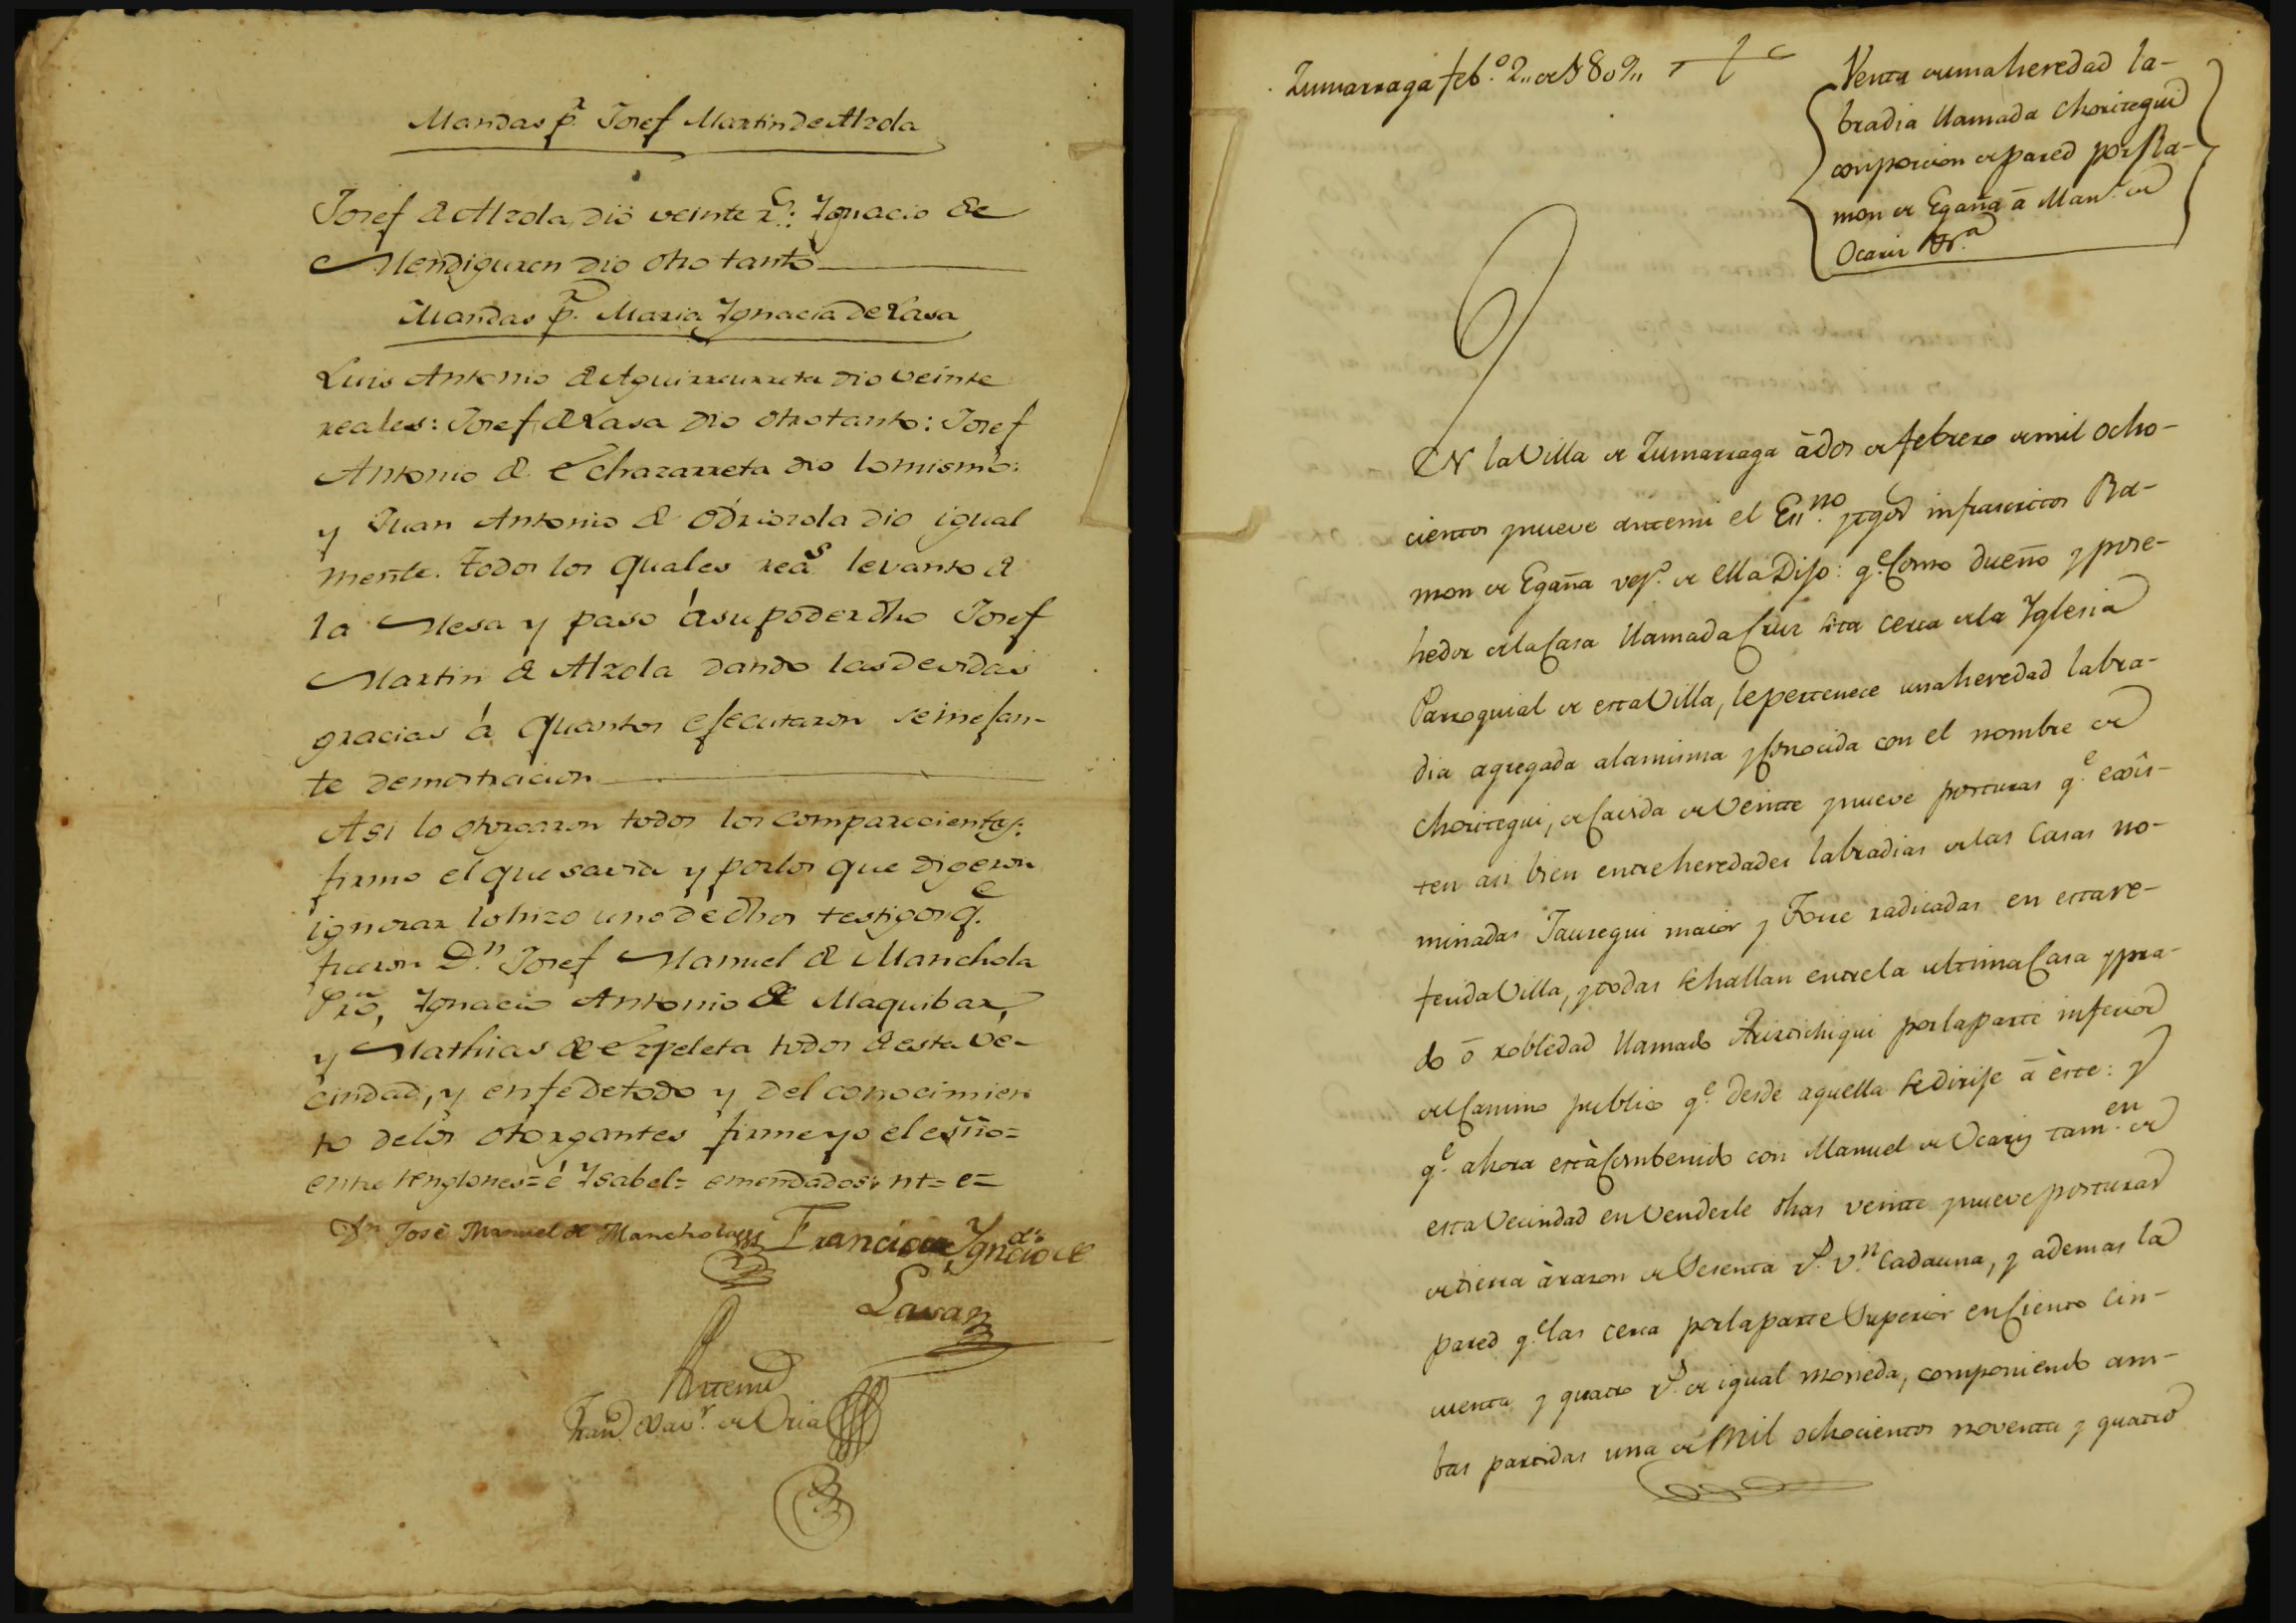 Mandas pr. Josef Martin de Alzola
Josef de Alzola dio veinte rs.: Ygnacio de
Mendiguren dio otro tanto
Mandas pr. Maria Ygnacia de Lasa
Luis Antonio de Aguirreurreta dio veinte
reales: Josef de Lasa dio otro tanto: Josef
Antonio de Echazarreta dio lo mismo:
y Juan Antonio de Odriozola dio igual
mente. todos los quales reas. levanto de
la Mesa y paso á su poder dho Josef
Martin de Alzola dando las devidas
gracias á quantos efecutaron semefan-
te demostracion
Asi lo otorgaron todos los comparecientes:
firmo el que savia y por los que digeron
ignorar lo hizo uno de dhos testigos qe.
fueron Dn. Josef Manuel de Manchola
Pro, Ygnacio Antonio de Maquibar,
y Mathias de Ezpeleta todos de esta ve-
cindad, y en fé de todo y del conocimien
to de los otorgantes firme yo el esño=
entre renglones= é Ysabel= emendados: nt= e=
Dn José Manuel de Manchola Francisco Ygnacio de
Lasa
Antemi
Fran.co Xavr. de Oria
Zumarraga feb.o 2,, de 1809,,
Venta de una heredad la-
bradia llamada Choritegui
con porcion de pared por Ra-
mon de Egaña á Manl. de
Ocariz
EN la Villa de Zumarraga à dos de febrero de mil ocho-
cientos y nueve ante mi el Esno. y tgos infrascritos Ra-
mon de Egaña vezo. de ella Dijo: qe. Como dueño y pose-
hedor de la Casa llamada Cruz sita cerca de la Yglesia
Parroquial de esta Villa, le pertenece una heredad labra-
dia agregada a la misma y Conocida con el nombre de
Choritegui, de Cavida de Veinte y nueve posturas qe. exîs-
ten asi bien entre heredades labradias de las Casas no-
minadas Jauregui maior y Torre radicadas en esta re-
ferida Villa, y todas se hallan entre la ultima Casa y pra-
do ó robledad llamado Arizchiqui por la parte inferior
del Camino publico qe. desde aquella se dirije á èste: y
qe. ahora està Combenido con Manuel de Ocariz tamen. de
esta Vecindad en Venderle dhas veinte y nueve posturas
de tierra à razon de Sesenta rs. vn. cada una, y ademas la
pared qe. las cerca por la parte Superior en Ciento cin-
cuenta y quatro rs. de igual moneda, componiendo am-
bas partidas una de mil ochocientos noventa y quatro